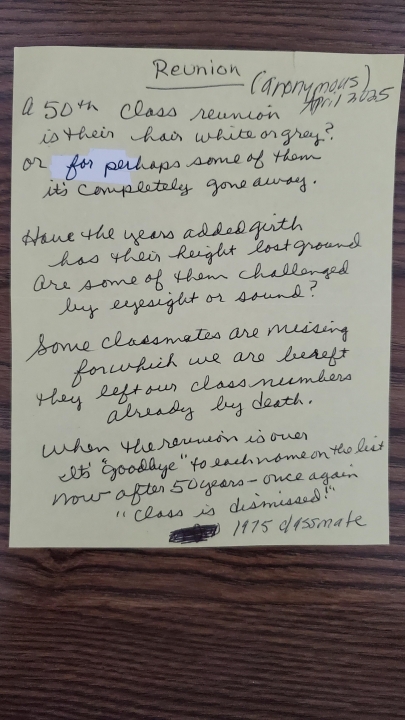 Reunion (anonymous)
April 2025
A 50th Class reunion
is their hair white or grey?
or for perhaps some of them
it's completely gone away.
Have the years added girth
has their height lost ground
are some of them challenged
by eyesight or sound?
Some classmates are missing
for which we are bereft
they left our class numbers
already by death.
When the reunion is over
It's "goodbye" to each name on the list
now after 50 years - once again
"Class is dismissed!"
1975 classmate